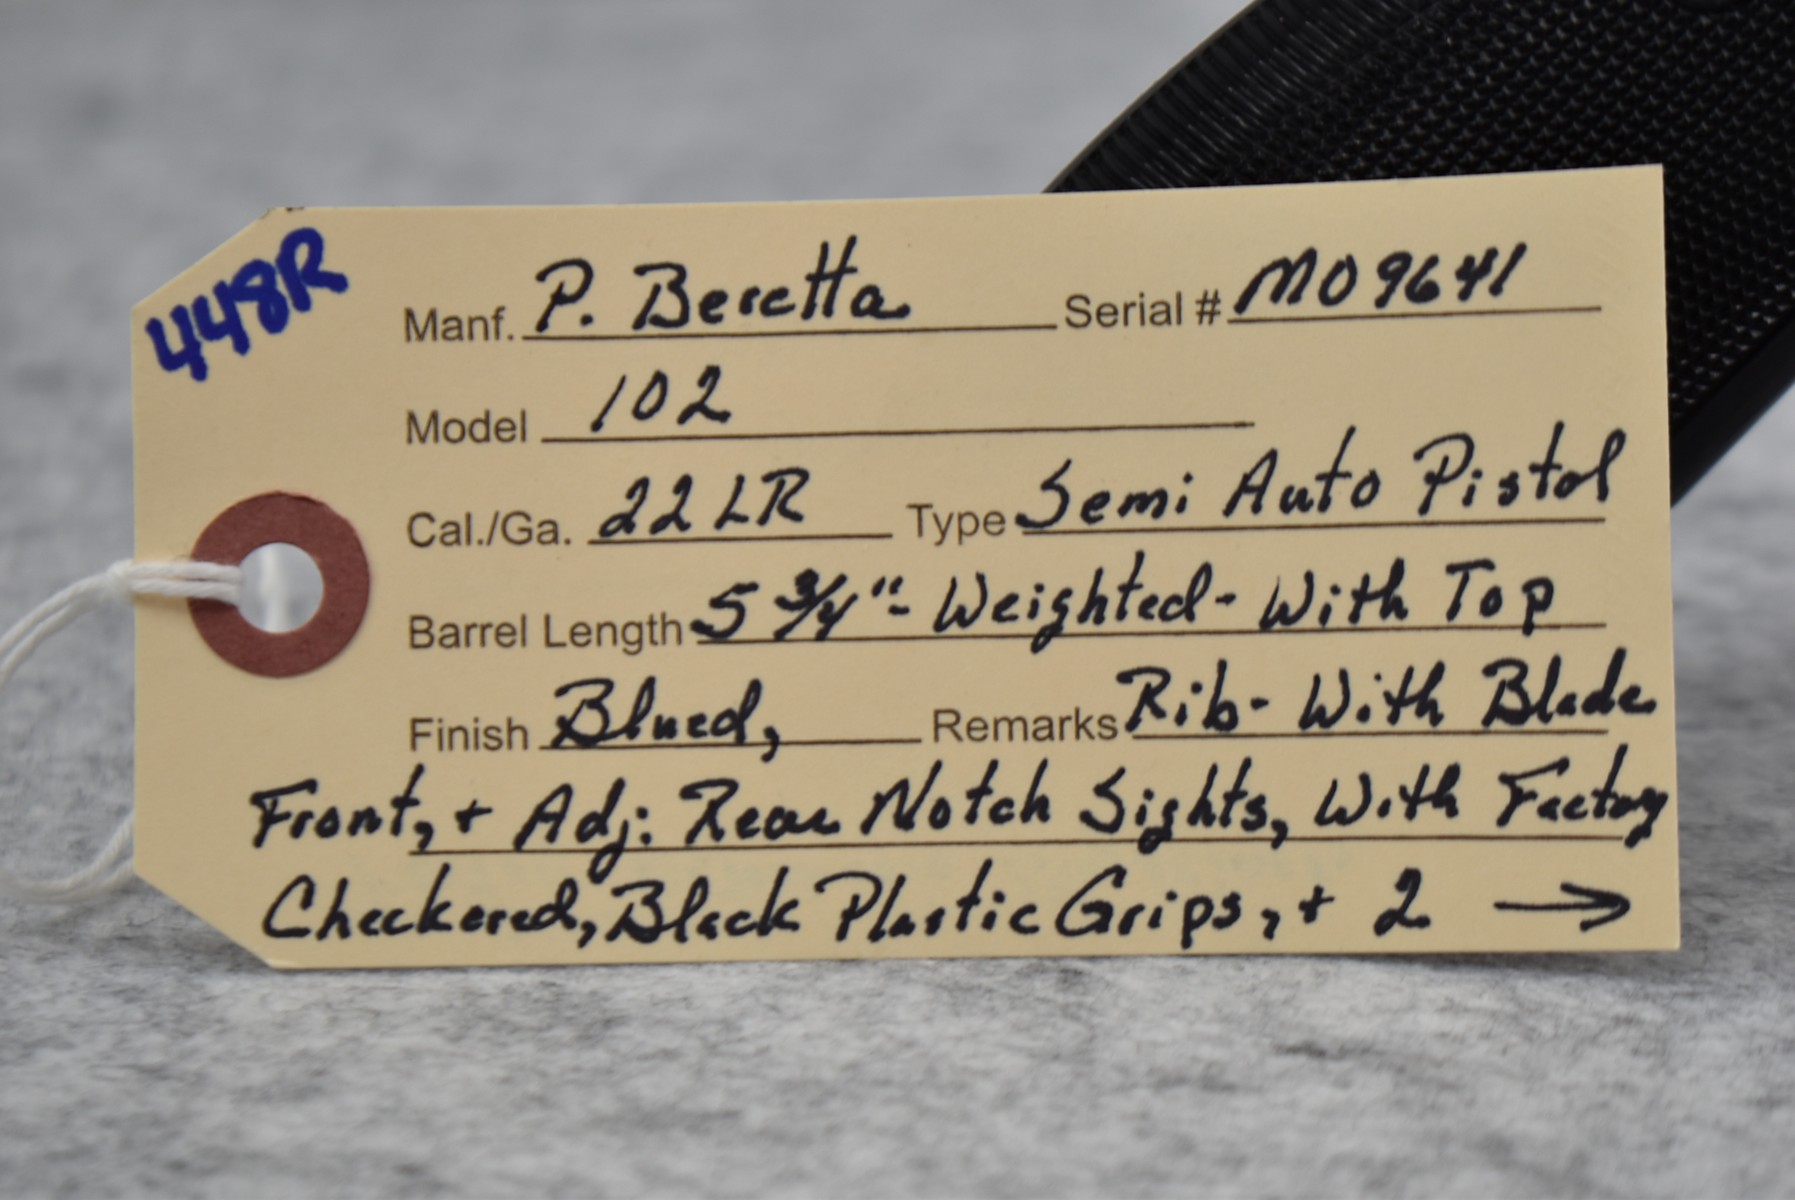 448R
Manf. P. Beretta Serial # M09641
Model 102
Cal./Ga. 22 LR Type Semi Auto Pistol
Barrel Length 5 3/4" - Weighted - With Top
Finish Blued, Remarks Rib - With Blade
Front, + Adj: Rear Notch Sights, With Factory
Checkered, Black Plastic Grips, + 2 →